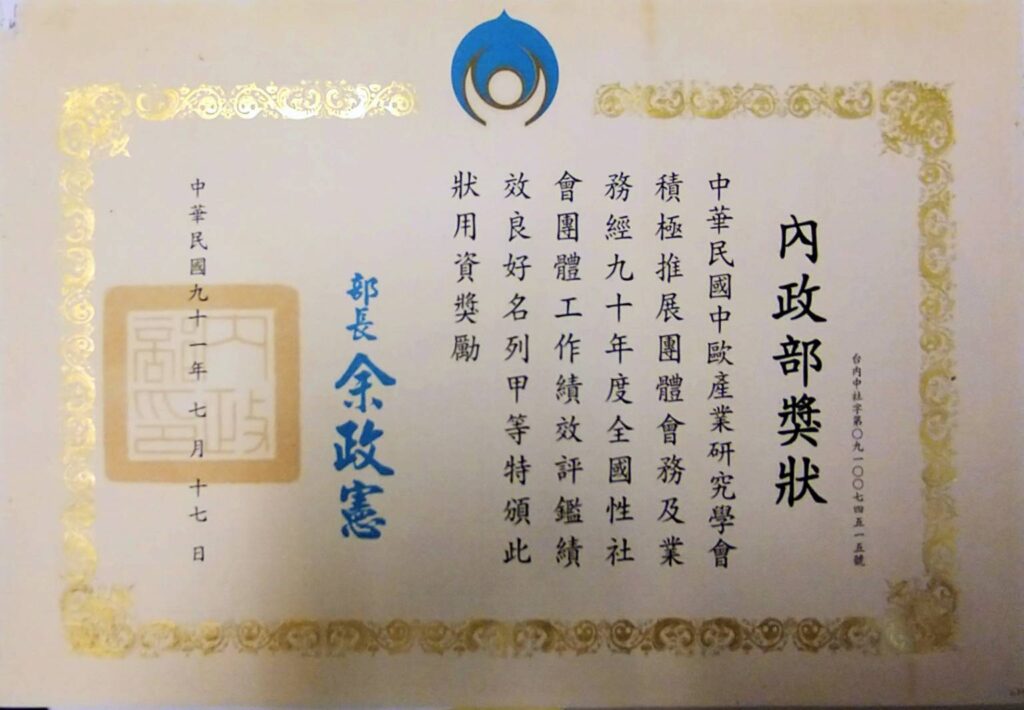 內政部獎狀
台內中社字第〇九一〇〇七四五一五號
中華民國中歐產業研究學會
積極推展團體會務及業
務經九十年度全國性社
會團體工作績效評鑑績
效良好名列甲等特頒此
狀用資獎勵
部長 余政憲
中華民國九十一年七月十七日
內政部印